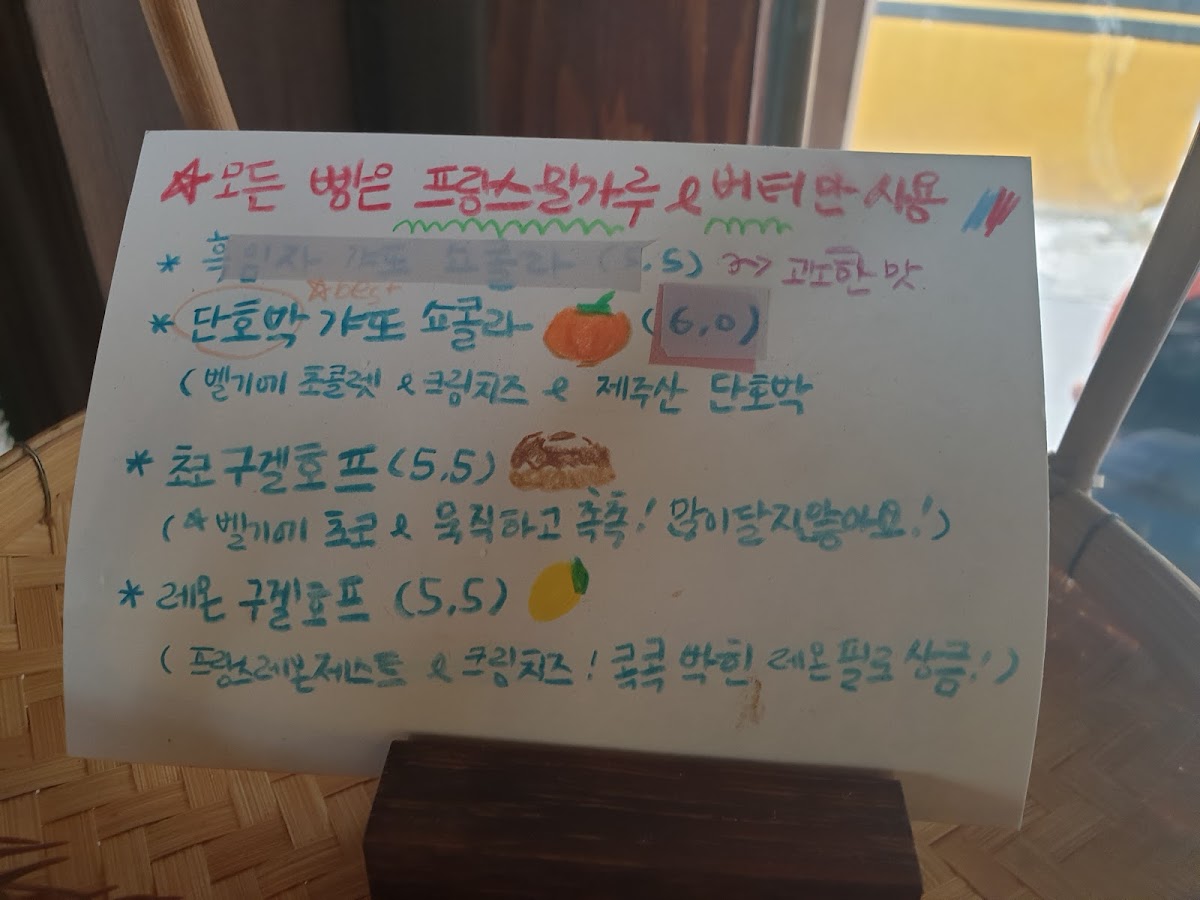 ☆모든 빵은 프랑스밀가루 & 버터만 사용
* 흑임자 갸또 쇼콜라 (5.5) ~> 고소한 맛
☆best
* 단호박 갸또 쇼콜라 (6.0)
(벨기에 초콜렛 & 크림치즈 & 제주산 단호박
* 초코 구겔호프 (5.5)
(☆벨기에 초코 & 묵직하고 촉촉! 많이달지않아요!)
* 레몬 구겔호프 (5.5)
(프랑스레몬제스트 & 크림치즈! 콕콕 박힌 레몬필로 상큼!)